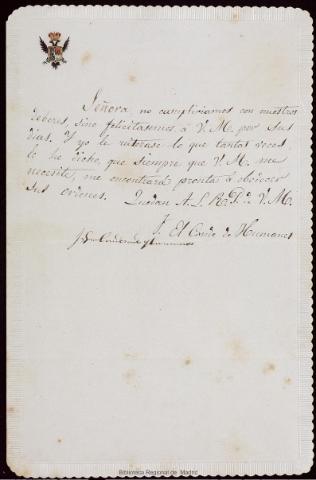 Señora, no cumpliriamos con nuestros
deberes, sino felicitasemos á V. M. por sus
dias. Y yo le reiterase lo que tantas veces
le he dicho, que siempre que V. M. me
necesite, me encontrará pronta á obedecer
sus ordenes. Quedan A. L. R. P. de V. M.
J. El Conde de Humanes
Biblioteca Regional de Madrid